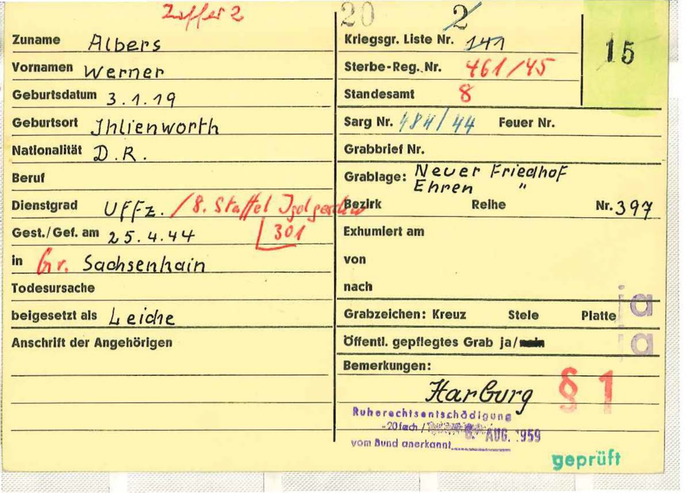 20 2
Zuname Albers
Vornamen Werner
Geburtsdatum 3.1.19
Geburtsort Jhlienworth
Nationalität D.R.
Beruf
Dienstgrad Uffz. / 8. Staffel
301
Gest./Gef. am 25.4.44
in Gr. Sachsenhain
Todesursache
beigesetzt als Leiche
Anschrift der Angehörigen
Kriegsgr. Liste Nr. 141
Sterbe-Reg. Nr. 461/45
Standesamt 8
15
Sarg Nr. 484/44 Feuer Nr.
Grabbrief Nr.
Grablage: Neuer Friedhof
Ehren "
Bezirk Reihe Nr. 397
Exhumiert am
von
nach
Grabzeichen: Kreuz Stele Platte ja
Öffentl. gepflegtes Grab ja/nein ja
Bemerkungen:
Harburg § 1
Ruherechtsentschädigung
-20fach /
6. AUG. 1959
vom Bund anerkannt
geprüft